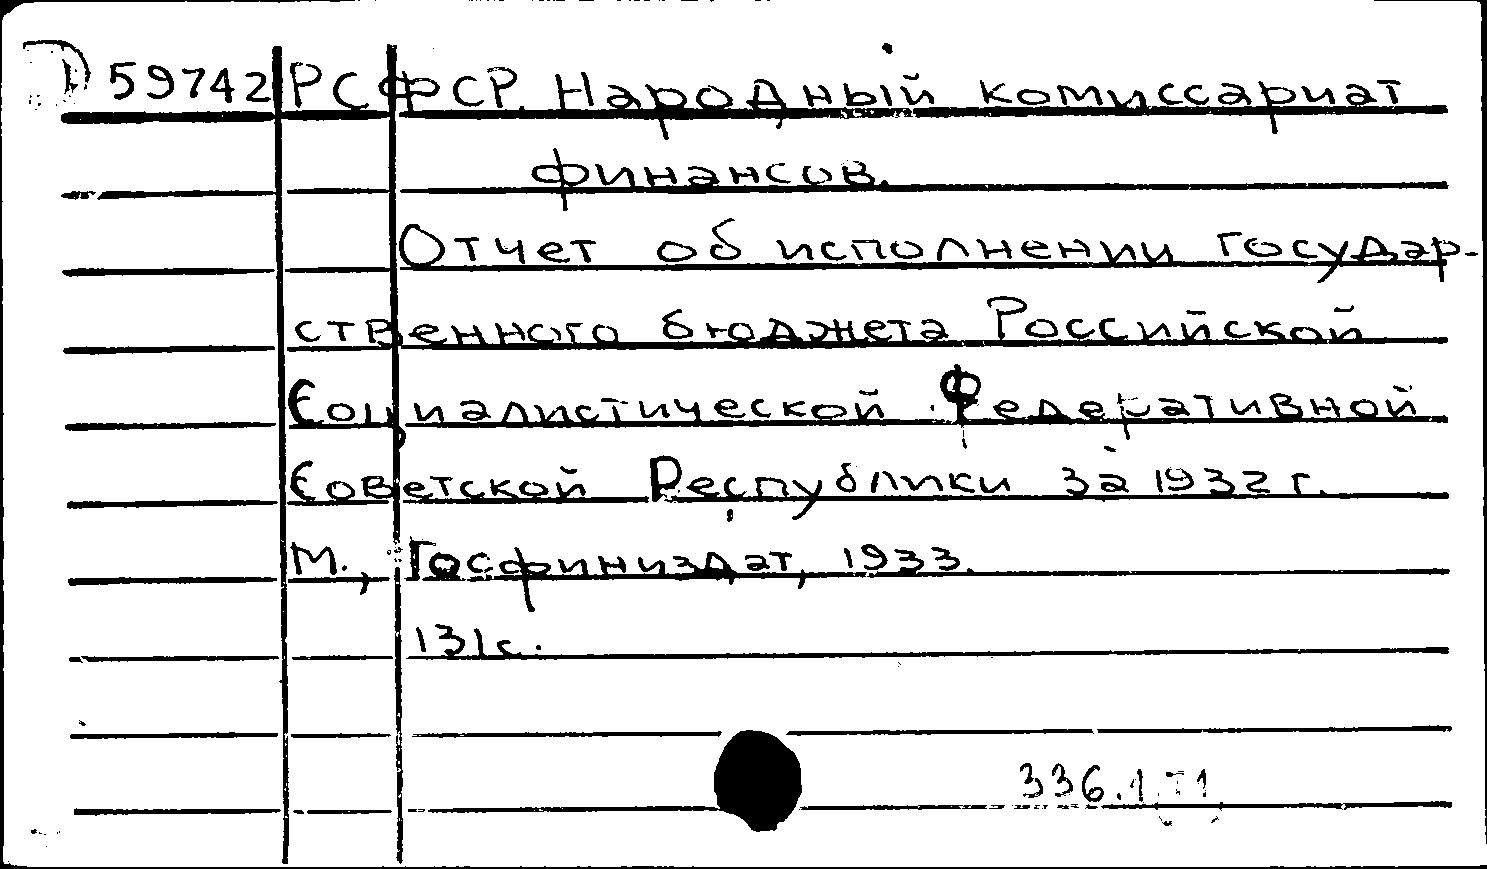 59742 РСФСР. Народный комиссариат
финансов.
Отчет об исполнении государ-
ственного бюджета Российской
Социалистической Федеративной
Советской Республики за 1932 г.
М., Госфиниздат, 1933.
131с.
336.1